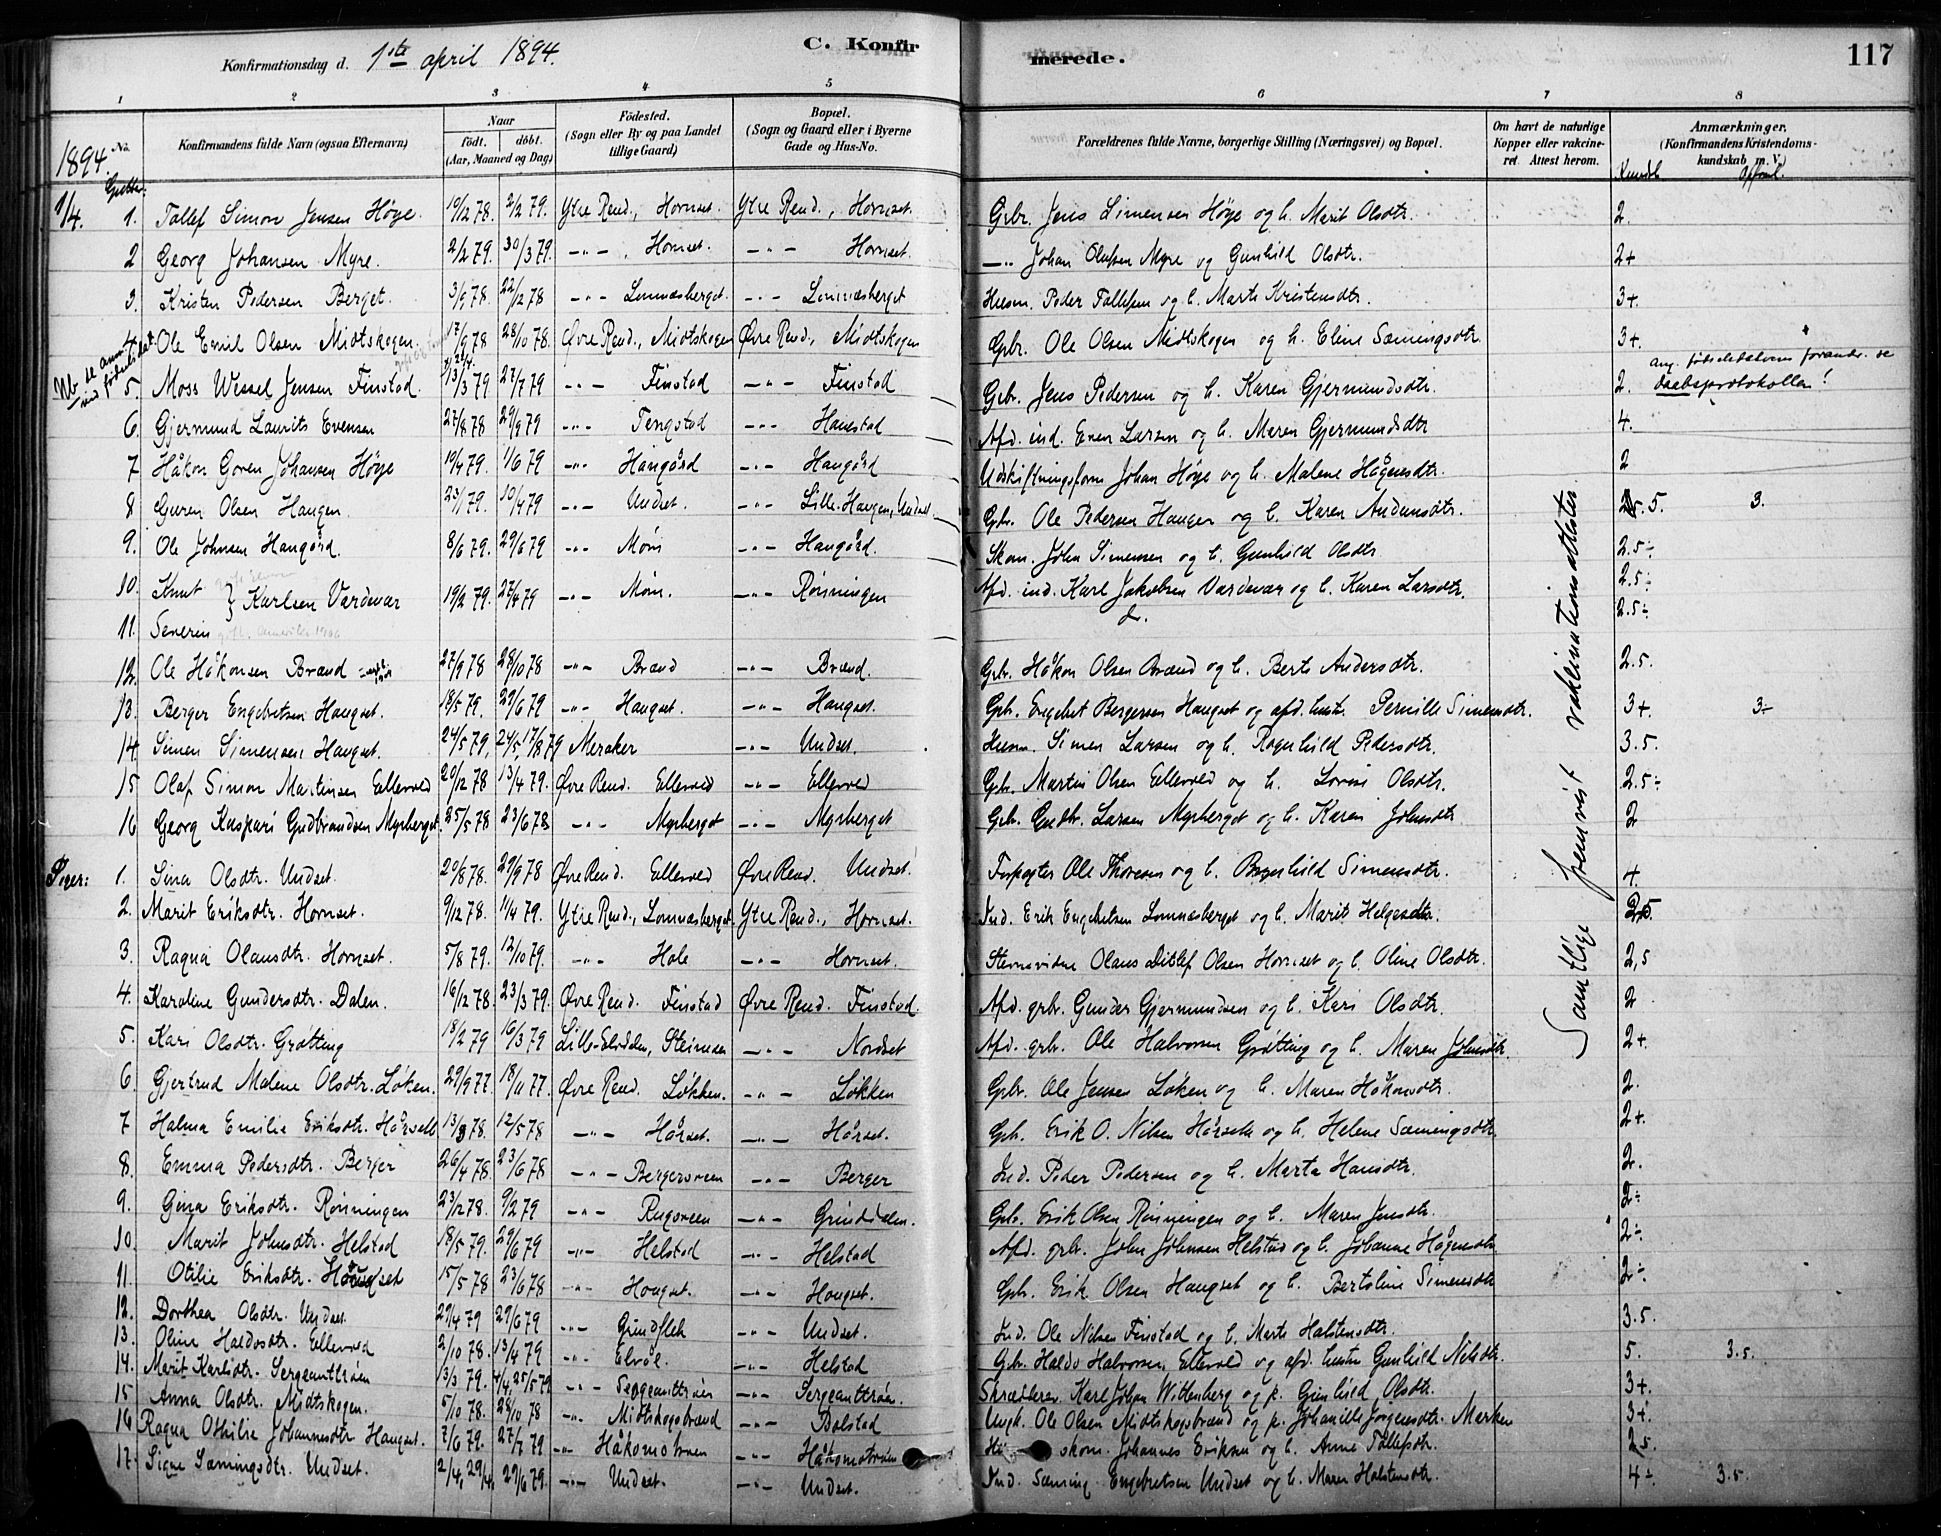 Konfirmationsdag d. 1ste april 1894. C. Konfirmerede. 117
1 2 3 4 5 6 7 8
1894. No. Konfirmandens fulde Navn (ogsaa Efternavn) Naar födt. döbt. (Aar, Maaned og Dag) Födested. (Sogn eller By og paa Landet tillige Gaard) Bopæl. (Sogn og Gaard eller i Byerne Gade og Hus-No. Forældrenes fulde Navne, borgerlige Stilling (Næringsvei) og Bopæl. Om havt de naturlige Kopper eller vakcineret. Attest herom. Anmærkninger. (Konfirmandens Kristendomskundskab m. V.)
Gutter. Kundsk. Opførsl.
1/4. 1. Tollef Simon Jensen Høye. 10/12 78. 2/2 79. Ytre Rend., Hornset. Ytre Rend., Hornset. Gbr. Jens Simensen Høye og h. Marit Olsdtr. 2.
2 Georg Johansen Myre. 2/2 79. 30/3 79. —"— Hornset. —"— Hornset. —"— Johan Olufsen Myre og Gunhild Olsdtr. 2+
3. Kristen Pedersen Berget. 3/9 78. 22/12 78 —"— Lomnæsberget. —"— Lomnæsberget Husm. Peder Tollefsen og h. Marte Kristensdtr. 3+.
4. Ole Emil Olsen Midtskogen. 17/9 78 28/10 78. Øvre Rend., Midtskogen Øvre Rend., Midtskogen Gbr. Ole Olsen Midtskogen og h. Eline Sæmingsdtr. 3+.
Nb. se anm. ved fødselsdat. 5. Moss Wessel Jensen Finstad. 13/3 79 27/7 79 —"— Finstad —"— Finstad Gbr. Jens Pedersen og h. Karen Gjermundsdtr. 2. ang. fødselsdatoens forandr. se daabsprotokollen!
6. Gjermund Laurits Evensen 27/8 78 29/9 79 —"— Fingstad —"— Hanestad Afd. ind. Even Larsen og h. Maren Gjermundsdtr 4.
7. Håkon Goren Johansen Høye 10/4 79. 1/6 79 —"— Haugård —"— Haugård Udskiftningsform. Johan Høye og h. Malene Hågensdtr. 2
8 Guren Olsen Haugen. 23/1 79. 10/4 79 —"— Undset. —"— Lille-Haugen, Undset. Gbr. Ole Pedersen Haugen og h. Karen Andersdtr. 2.5. 3.
9. Ole Johnsen Haugård. 8/6 79. 29/6 79 —"— Møin —"— Haugård. Skom. John Simensen og h. Gunhild Olsdtr 2.5-
10. Knut } Karlsen Vardevær 19/2 79. 27/4 79 —"— Møin. —"— Rønningen Afd. ind. Karl Jakobsen Vardevær og h. Karen Larsdtr. 2.5-
11. Severin 2.5-
12. Ole Håkonsen Brænd 27/9 78 28/10 78 —"— Brænd —"— Brænd. Gbr. Håkon Olsen Brænd og h. Berte Andersdtr. 2.5.
13. Berger Engebretsen Haugset. 18/5 79. 29/6 79 —"— Haugset. —"— Haugset. Gbr. Engebret Bergersen Haugset og afd. hustr. Pernille Simensdtr. 3+. 3-
14. Simen Simensen Haugset. 24/5 79, 24/5, 17/8 79 Meraker —"— Undset. Husm. Simen Larsen og h. Ragnhild Pedersdtr. 3.5.
15 Olaf Simon Martinsen Ellevold 20/12 78 13/4 79. Øvre Rend. Ellevold —"— Ellevold Gbr. Martin Olsen Ellevold og h. Lovise Olsdtr. 2.5-
16 Georg Kaspari Gudbrandsen Myrberget. 25/5 78 23/6 78 —"— Myrberget —"— Myrberget Gbr. Gudbr. Larsen Myrberget og h. Karen Johnsdtr 2
Piger: 1. Sina Olsdtr. Undset. 20/8 78. 29/9 78 Øvre Rend. Ellevold Øvre Rend. Undset. Forpagter Ole Thoresen og h. Ragnhild Simensdtr. 4.
2. Marit Eriksdtr. Hornset. 9/12 78. 11/4 79. Ytre Rend., Lomnæsberget. Ytre Rend., Hornset. Ind. Erik Engebretsen Lomnæsberget og h. Marit Helgesdtr. 2.5.
3. Ragna Olausdtr. Hornset. 5/8 79. 12/10 79. —"— Hole —"— Hornset. Stevnevidne Olaus Ditlef Olsen Hornset og h. Oline Olsdtr. 2,5
4. Karoline Gundersdtr. Dalen. 16/12 78. 23/3 79. Øvre Rend. Finstad Øvre Rend. Finstad. Afd. gbr. Gunder Gjermundsen og h. Kari Olsdtr. 2
5. Kari Olsdtr. Grøtting 18/2 79 16/3 79 Lille-Elvdalen, Steimoen —"— Nordset Afd. gbr. Ole Halvorsen Grøtting og h. Maren Johnsdtr. 2+.
6. Gjertrud Malene Olsdtr. Løken. 29/9 77. 18/11 77. Øvre Rend. Løkken. —"— Løkken Gbr. Ole Jensen Løken og h. Maren Håkonsdtr. 2.
7 Halma Emilie Eriksdtr. Hårseth 13/3 78. 12/5 78 —"— Hårset. —"— Hårset. Gbr. Erik O. Nilsen Hårseth og h. Helene Sæmingsdtr. 2+.
8. Emma Pedersdtr. Berger 26/4 78. 23/6 78 —"— Bergersveen —"— Berger Ind. Peder Pedersen og h. Marta Hansdtr. 2.
9. Gina Eriksdtr. Rønningen 23/12 78. 9/2 79 —"— Rugsveen —"— Grinddalen. Gbr. Erik Olsen Rønningen og h. Maren Jensdtr. 2-
10. Marit Johnsdtr. Helstad 18/5 79. 29/6 79 —"— Helstad —"— Helstad Afd. gbr. John Johnsen Helstad og h. Johanne Hågensdtr 2-
11. Otilie Eriksdtr. Haugset 15/5 78 23/6 78 —"— Hougset. —"— Hougset. Gbr. Erik Olsen Haugset og h. Bertoline Simensdtr 2-
12. Dorthea Olsdtr. Undset. 29/4 79 29/6 79 —"— Grindflek —"— Undset. Ind. Ole Nilsen Finstad og h. Marte Halstensdtr. 3.5.
13. Oline Haldosdtr. Ellevold 2/10 78. 13/4 79 —"— Elvål. —"— Helstad Gbr. Haldo Halvorsen Ellevold og afd. hustr. Gunhild Nilsdtr. 5. 3.5.
14. Marit Karlsdtr. Sergeanttrøen 13/3 79. 4/4, 25/5 79 —"— Sergeanttrøen —"— Sergeanttrøen. Skrædderen Karl Johan Wittenberg og p. Gunhild Olsdtr. 3+.
15 Anna Olsdtr. Midtskogen. 5/10 78. 28/10 78 —"— Midtskogsbrænd —"— Bolstad Ungk. Ole Olsen Midtskogsbrænd og p. Johanille Jørgensdtr. Marken 3+.
16 Ragna Othilie Johannesdtr Haugset. 7/6 79. 27/7 79 —"— Håkomstrøen —"— Håkomstrøen skom. Johannes Eriksen og h. Anne Tollefsdtr. 2.5.
17. Signe Sæmingsdtr. Undset. 2/4, 29/4, 29/6 79. —"— Undset. —"— Undset. Ind. Sæming Engebretsen Undset og h. Maren Halstensdtr. 4- 3.5.
Samtlige fremvist vakcinationsattester.